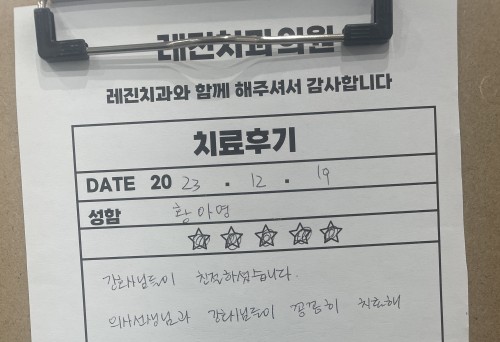 레진치과의원
레진치과와 함께 해주셔서 감사합니다
치료후기
DATE 20 23 . 12 . 19
성함 황아영
간호사님들이 친절하셨습니다.
의사선생님과 간호사님들이 꼼꼼히 치료해